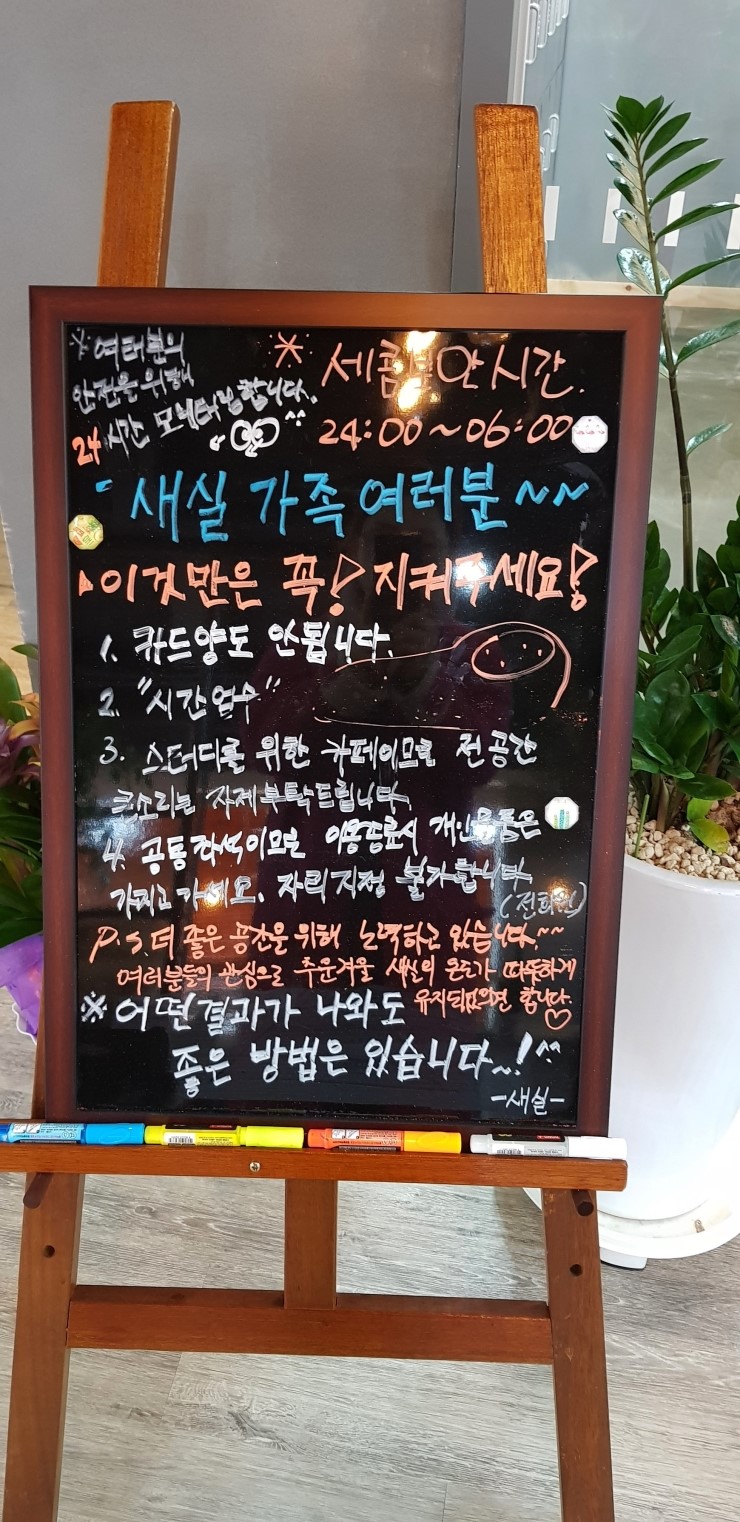 ※ 여러분의
안전을 위해
24시간 모니터링합니다.^^
※ 세콤보안시간.
24:00~06:00
새실 가족 여러분~~
이것만은 꼭! 지켜주세요!
1. 카드양도 안됩니다.
2. "시간엄수"
3. 스터디를 위한 카페이므로 전공간
큰소리는 자제부탁드립니다.
4. 공동좌석이므로 이용종료시 개인용품은
가지고가세요. 자리지정 불가합니다.
P.S. 더 좋은 공간을 위해 노력하고 있습니다.~~
여러분들의 관심으로 추운겨울 새실의 온도가 따뜻하게
유지되었으면 합니다.♡
※ 어떤결과가 나와도
좋은 방법은 있습니다~!^^
-새실-